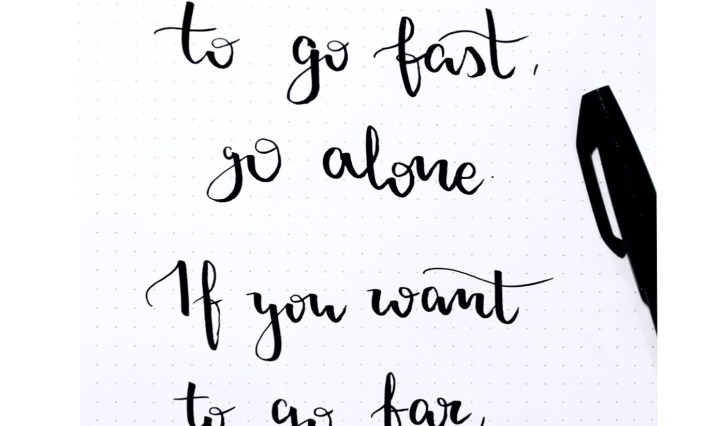 to go fast,
go alone.
If you want
to go far,